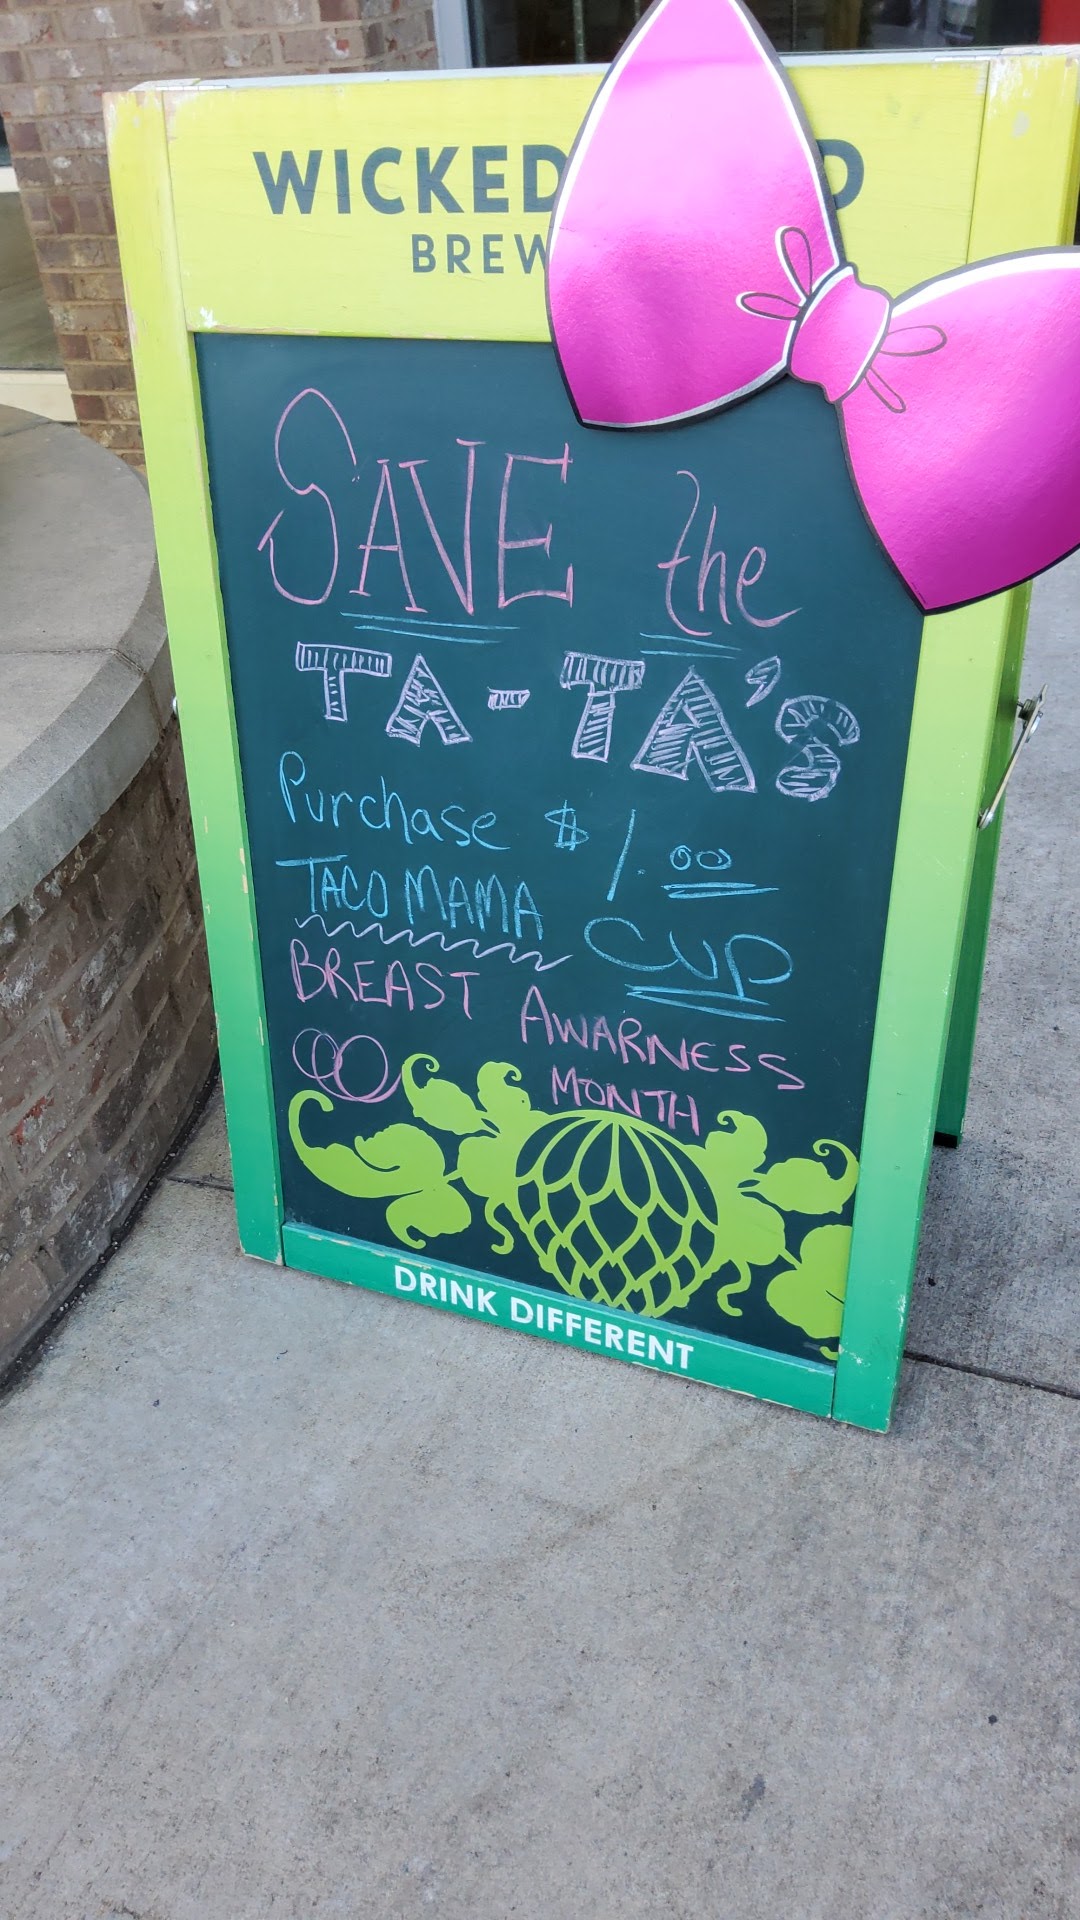 WICKED
BREW
SAVE the
TA-TA's
Purchase $1.00
TACO MAMA CUP
BREAST AWARNESS
MONTH
DRINK DIFFERENT